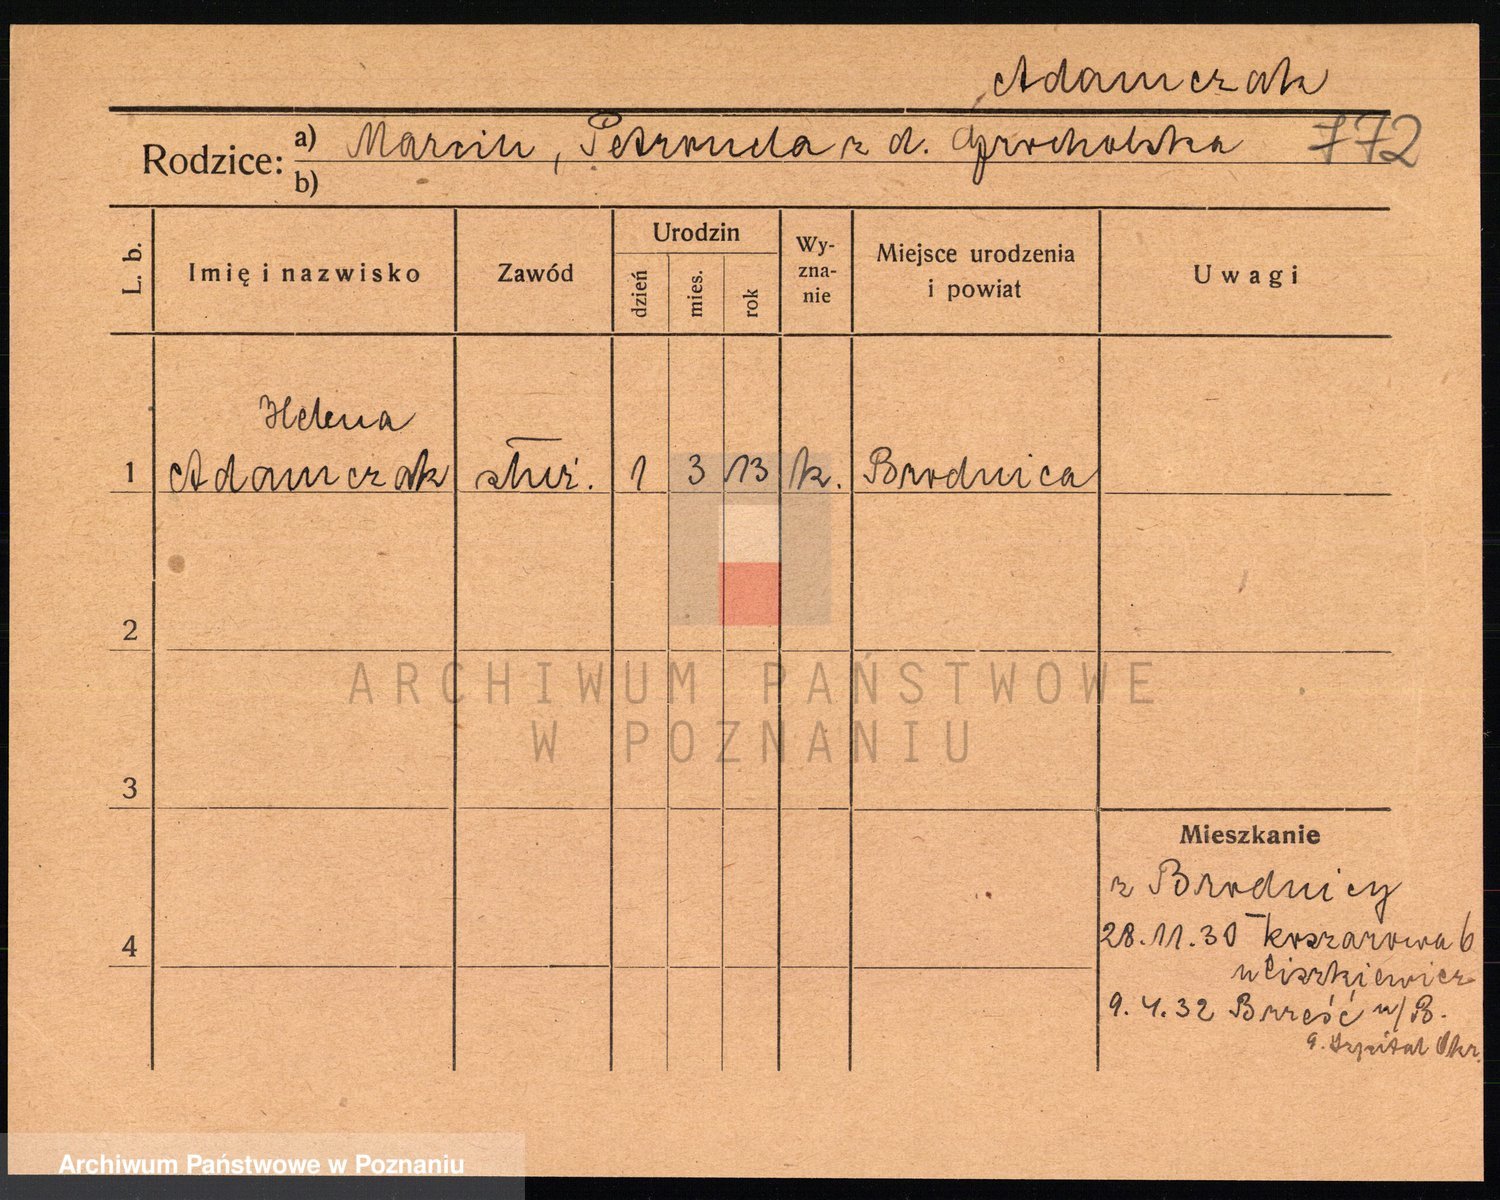 Adamczak
Rodzice: a) Marcin, Petronela z d. Grocholska 772
b)
L. b. Imię i nazwisko Zawód Urodzin dzień mies. rok Wyznanie Miejsce urodzenia i powiat Uwagi
Helena
1 Adamczak służ. 1 3 13 k. Brodnica
2
ARCHIWUM PAŃSTWOWE
W POZNANIU
3
Mieszkanie
z Brodnicy
4 28.11.30 Koszarowa 6
u Ciszkiewicz
9.4.32 Brześć n/B.
9. Szpital Okr.
Archiwum Państwowe w Poznaniu